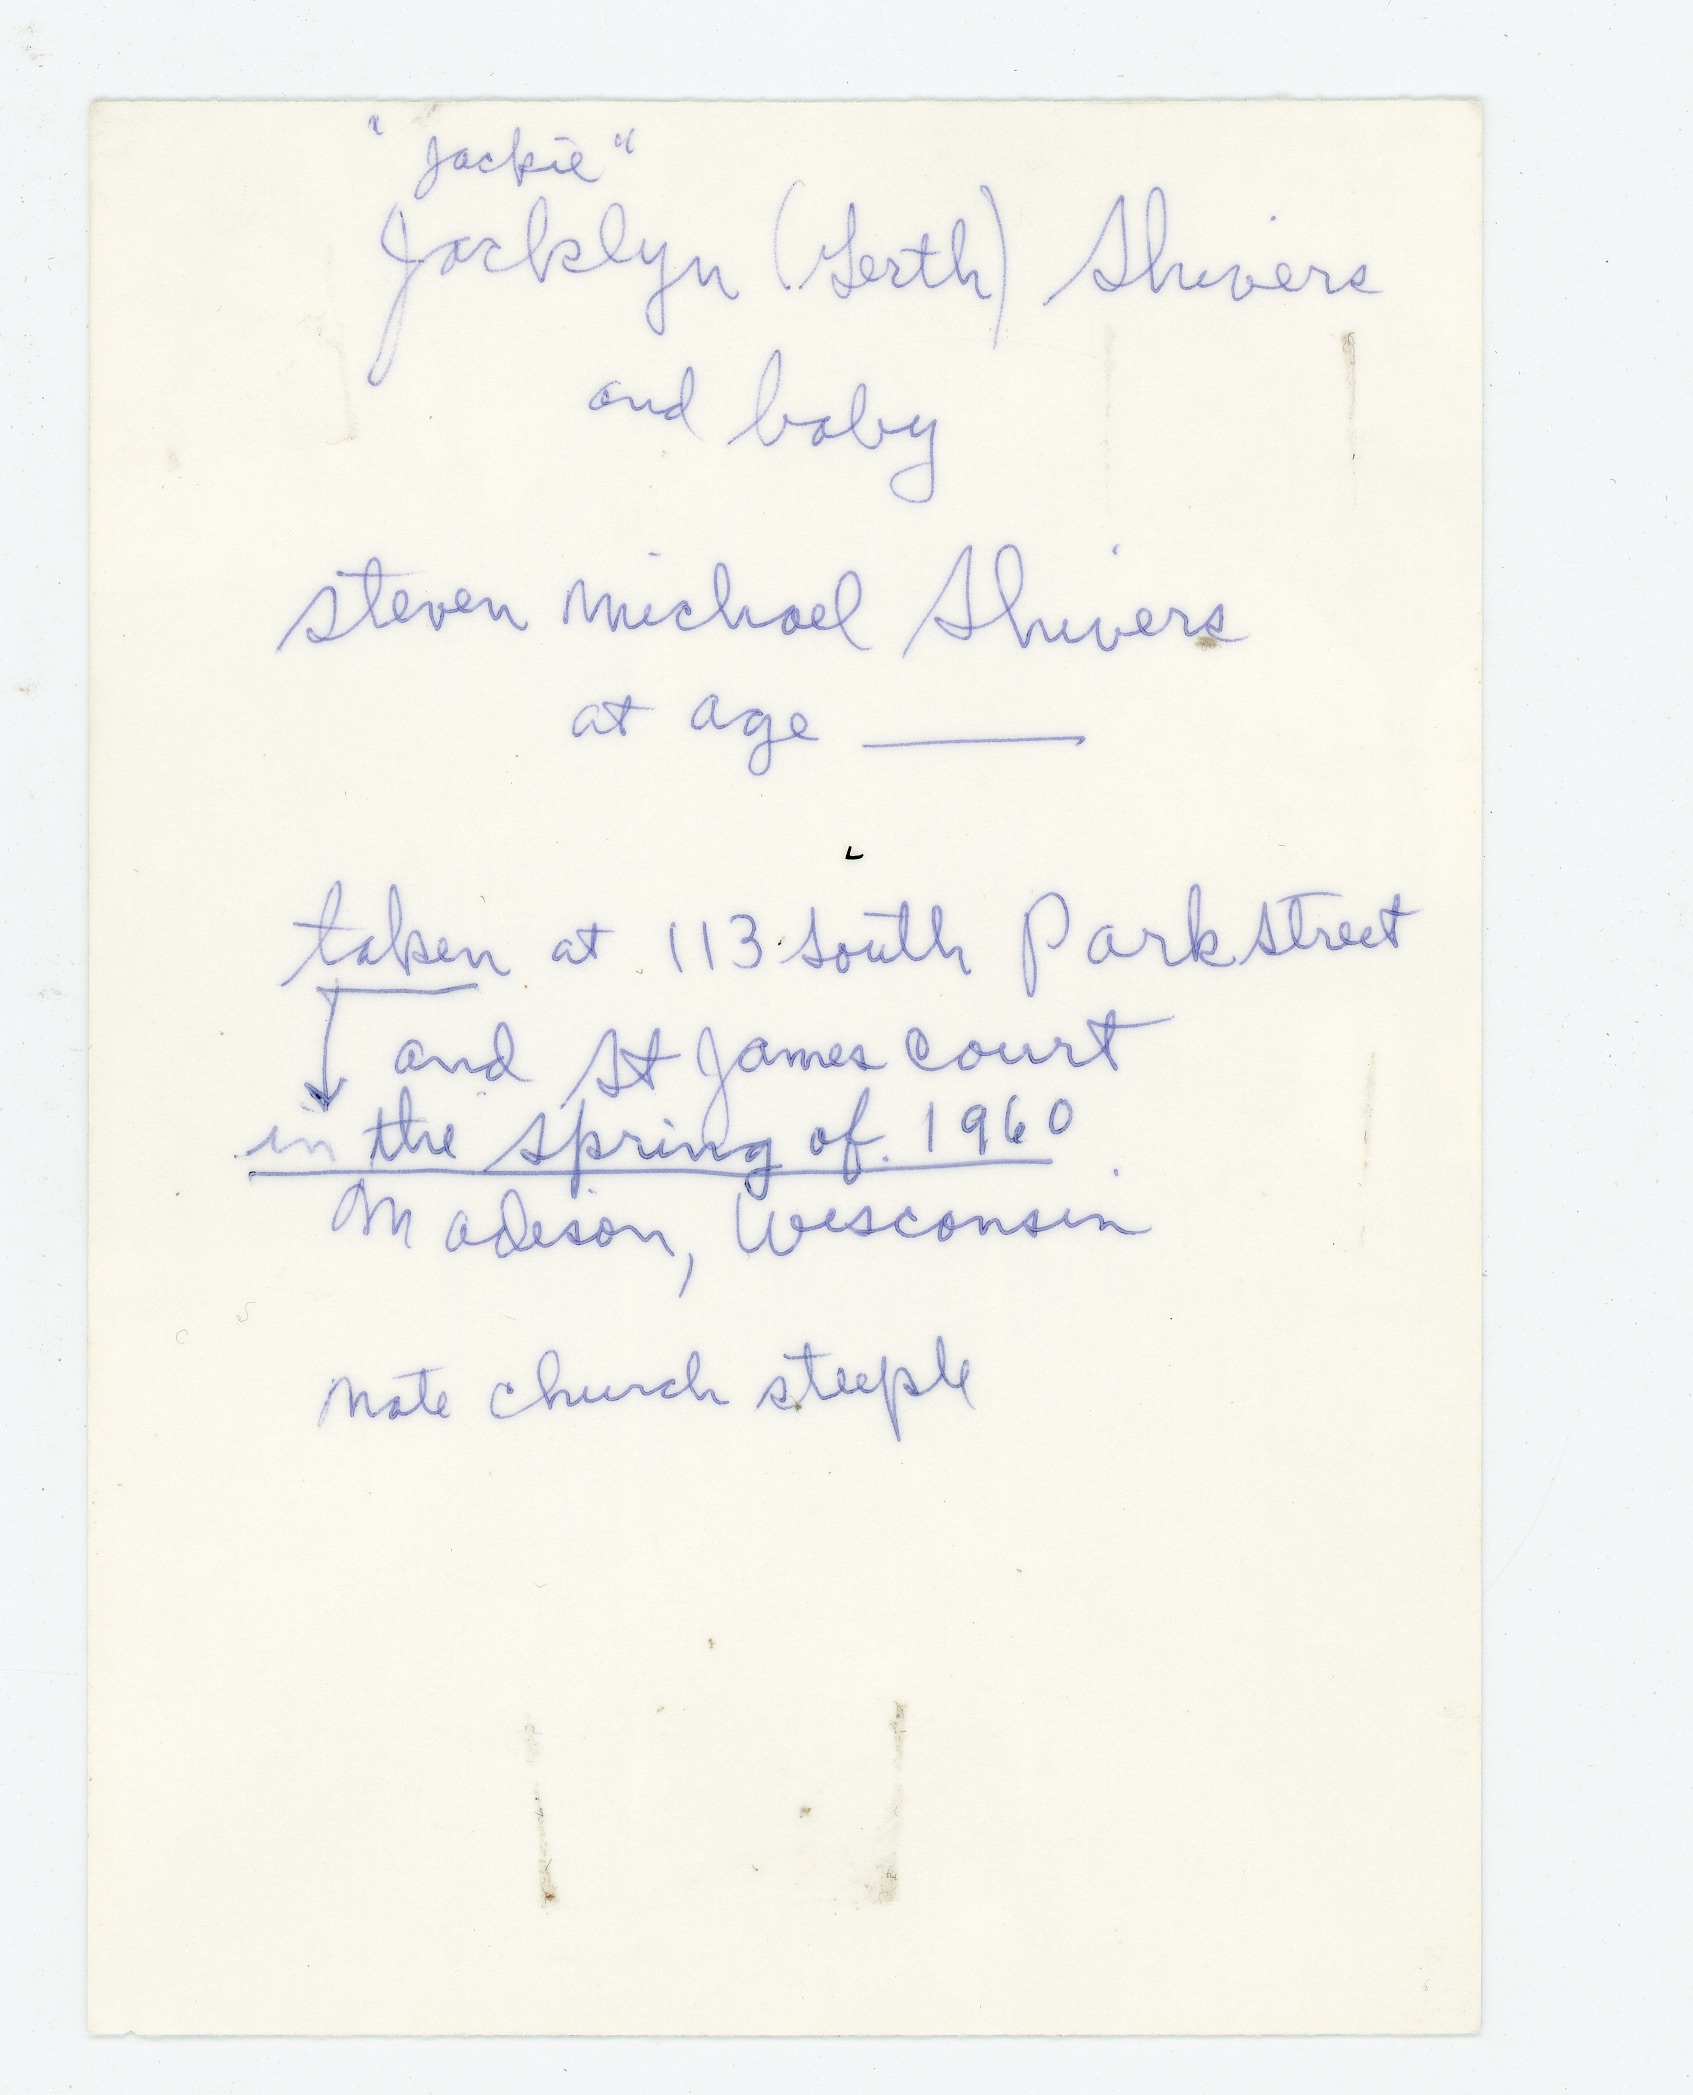 "Jackie"
Jacklyn (Gerth) Shivers
and baby
Steven Michael Shivers
at age ____
taken at 113 South Park Street
and St James Court
in the spring of 1960
Madison, Wisconsin
Note church steeple